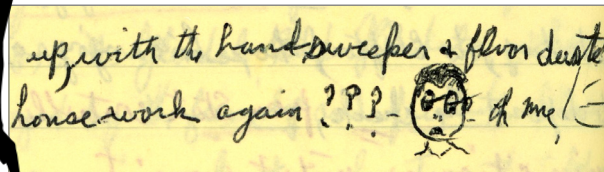 up, with the hand sweeper & floor duste
house work again ??? - oh me!